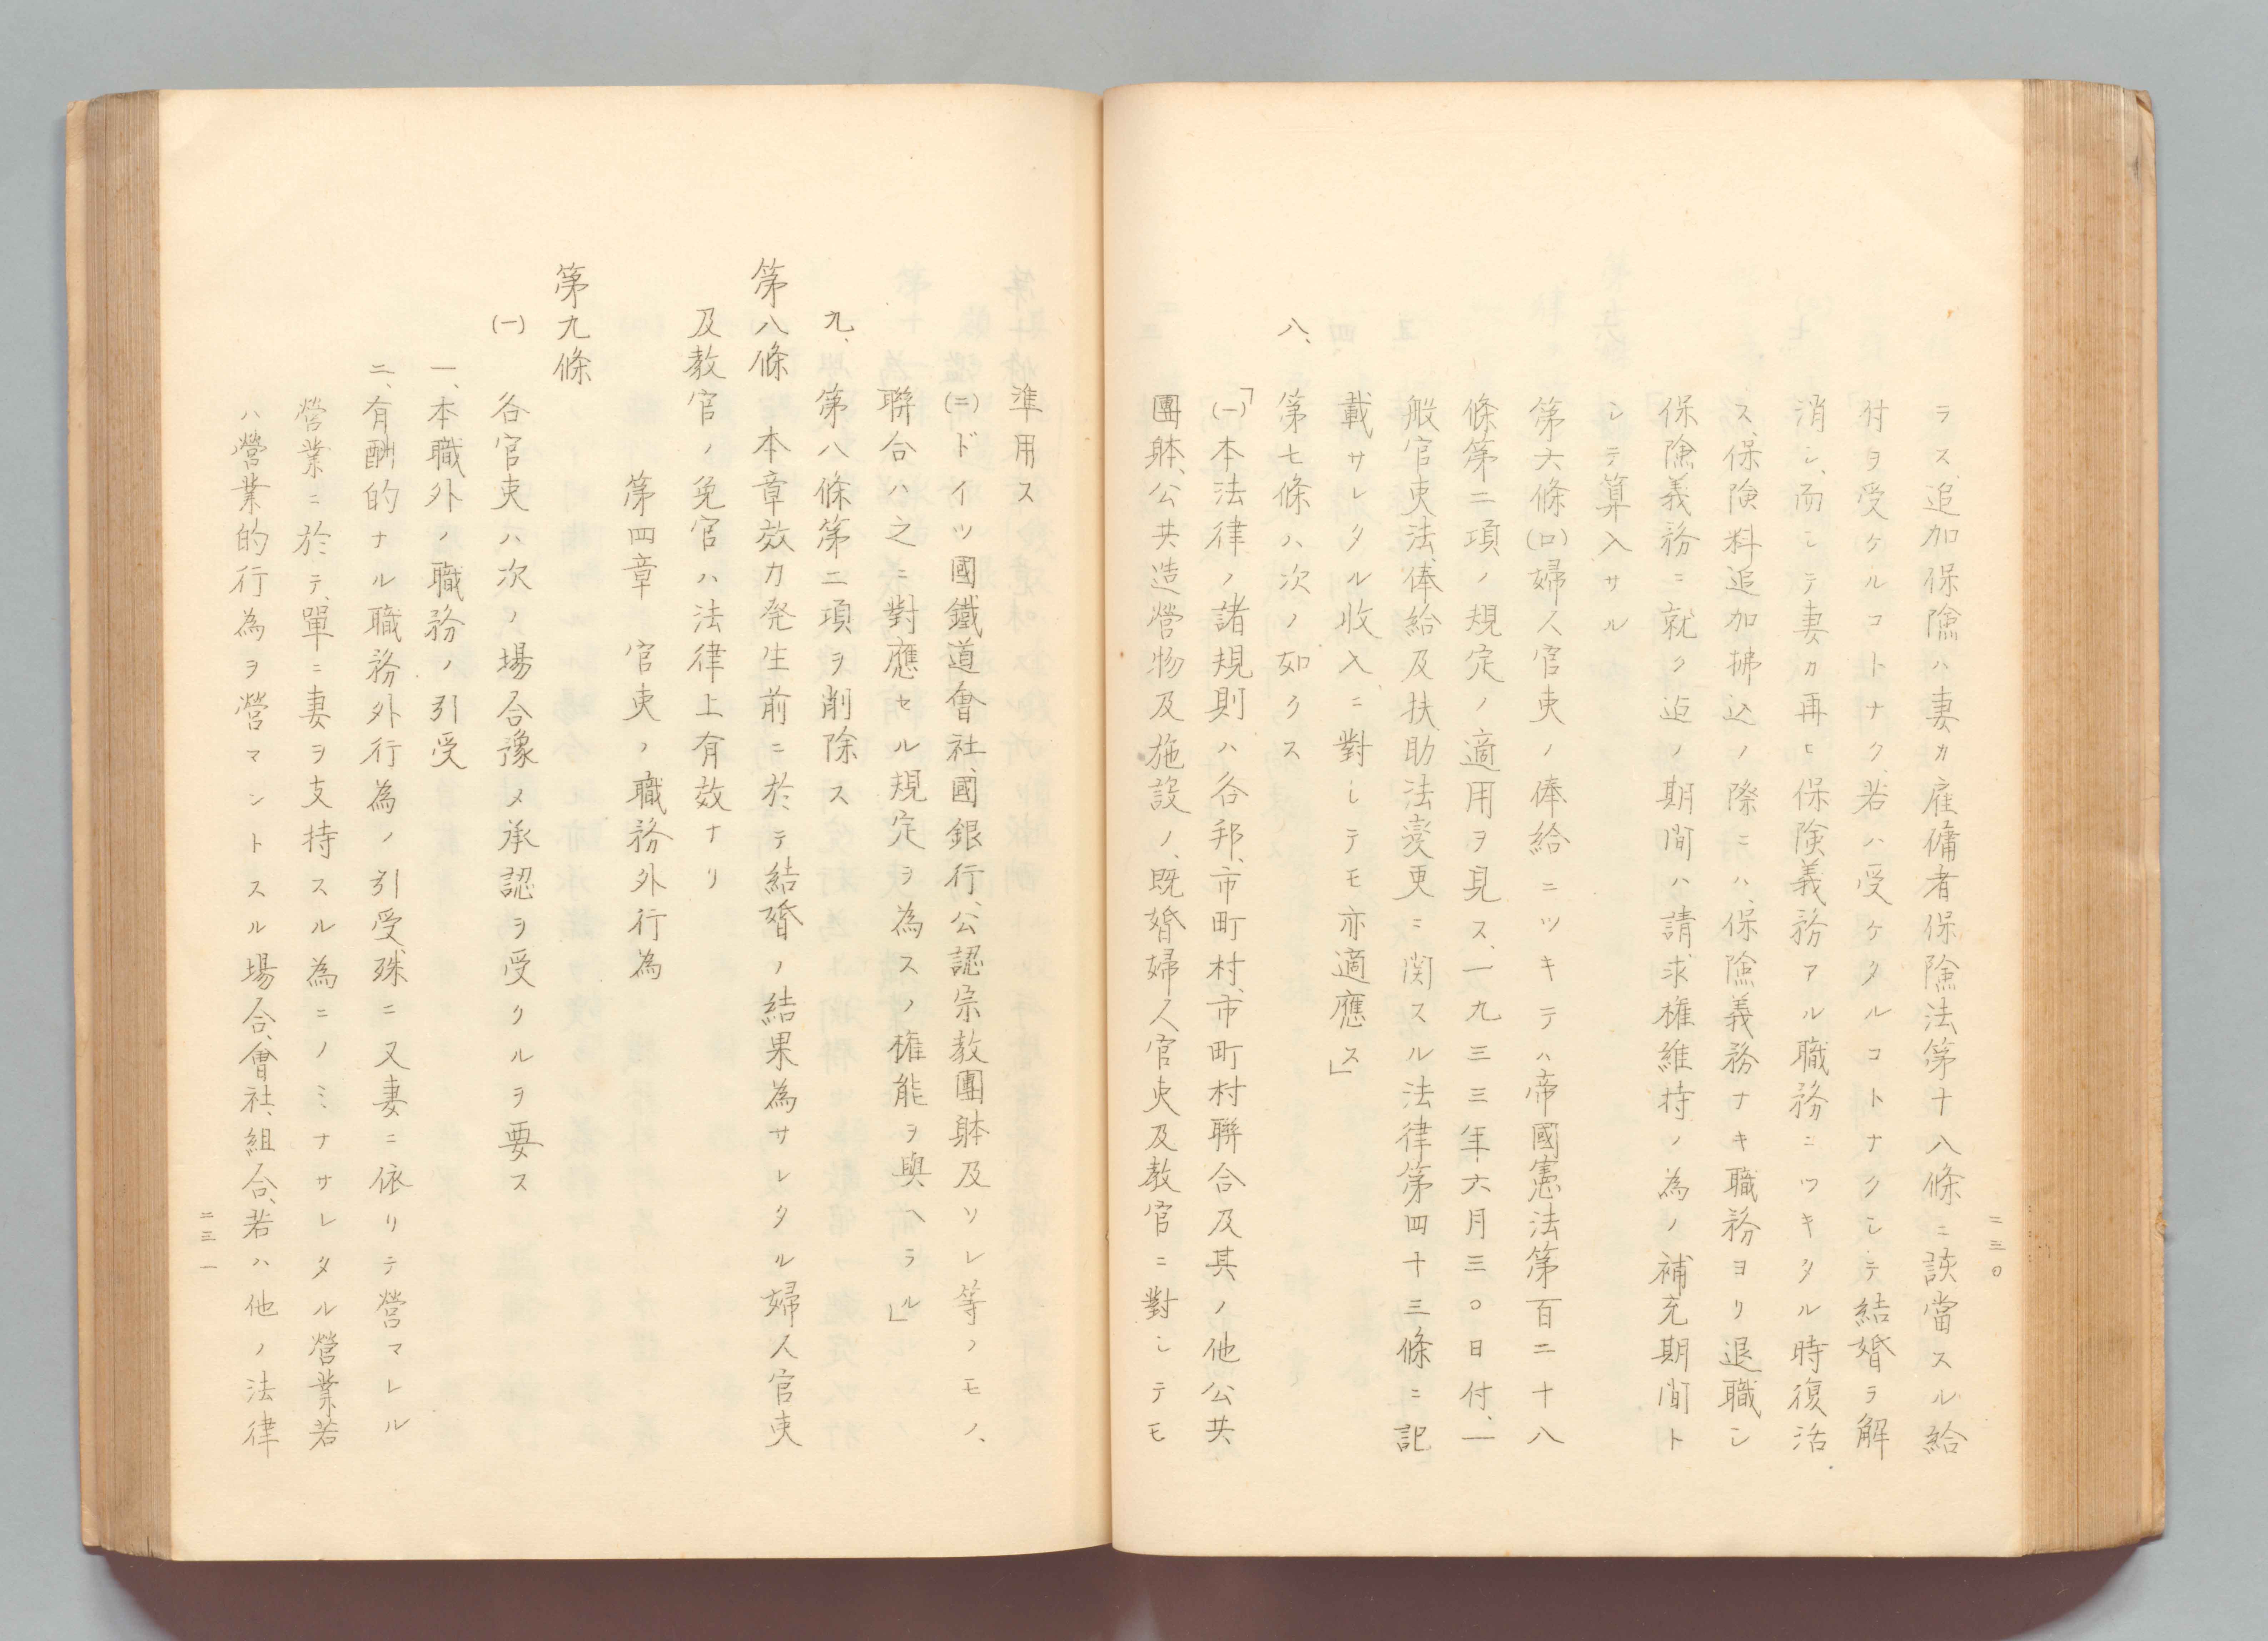 二三〇
ラス、追加保險ハ妻カ雇傭者保險法第十八條ニ該當スル給
付ヲ受ケルコトナク、若ハ受ケタルコトナクシテ結婚ヲ解
消シ、而シテ妻カ再ヒ保険義務アル職務ニツキタル時復活
ス、保険料追加拂込ノ際ニハ、保險義務ナキ職務ヨリ退職シ
保險義務ニ就ク迄ノ期間ハ請求権維持ノ為ノ補充期間ト
シテ算入サル
第六條(ロ)婦人官吏ノ俸給ニツキテハ帝國憲法第百二十八
條第二項ノ規定ノ適用ヲ見ス、一九三三年六月三〇日付、一
般官吏法、俸給及扶助法変更ニ関スル法律第四十三條ニ記
載サレタル收入ニ對シテモ亦適應ス」
八、第七條ハ次ノ如クス
「(一)本法律ノ諸規則ハ各邦、市町村、市町村聯合及其ノ他公共
團躰、公共造營物及施設ノ、既婚婦人官吏及教官ニ對シテモ
準用ス
(二)ドイツ國鐵道會社、國銀行、公認宗教團躰及ソレ等ノモノヽ
聯合ハ之ニ對應セル規定ヲ為スノ権能ヲ與ヘラル」
九、第八條第二項ヲ削除ス
第八條　本章效力発生前ニ於テ結婚ノ結果為サレタル婦人官吏
及教官ノ免官ハ法律上有效ナリ
第四章　官吏ノ職務外行為
第九條
(一)各官吏ハ次ノ場合豫メ承認ヲ受クルヲ要ス
一、本職外ノ職務ノ引受
二、有酬的ナル職務外行為ノ引受、殊ニ又妻ニ依リテ營マレル
營業ニ於テ、單ニ妻ヲ支持スル為ニノミナサレタル營業若
ハ營業的行為ヲ營マントスル場合、會社、組合、若ハ他ノ法律
二三一